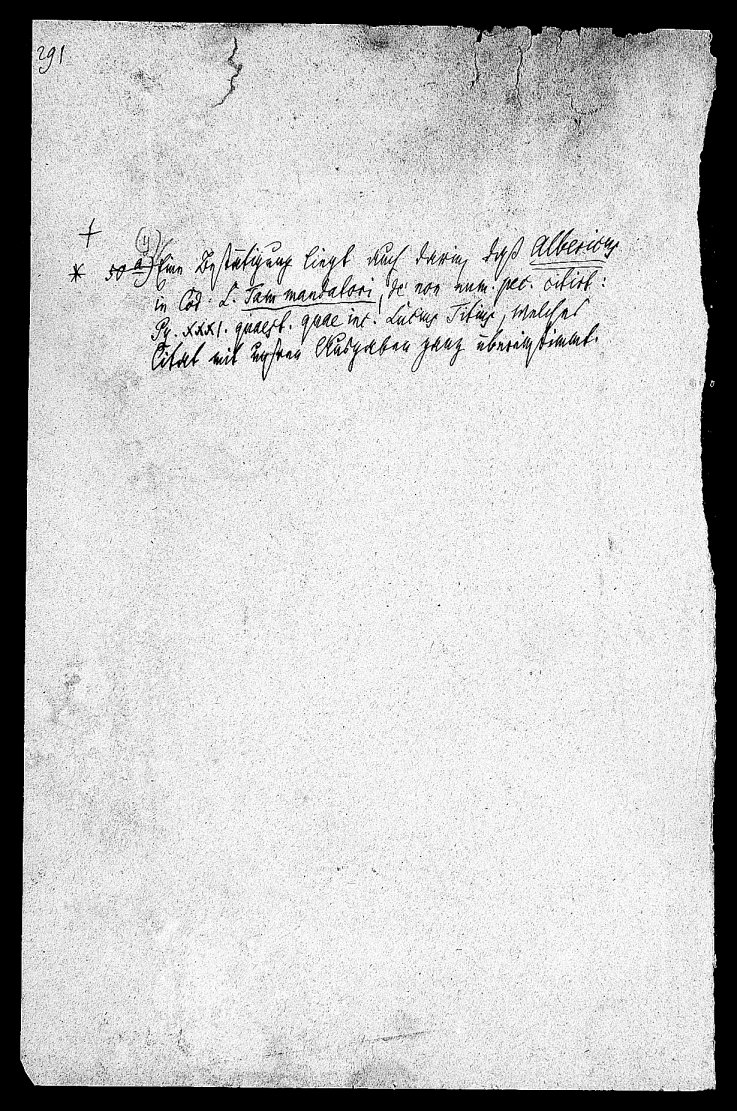 291
+
(y)
* 50 a) Eine Bestätigung liegt auch darin, daß Albericus
in Cod. L. Tam mandatori, de non num. pec. citirt:
Ph. XXXI. quaest. quae inc. Lucius Titius, welches
Citat mit unsren Ausgaben ganz übereinstimmt.